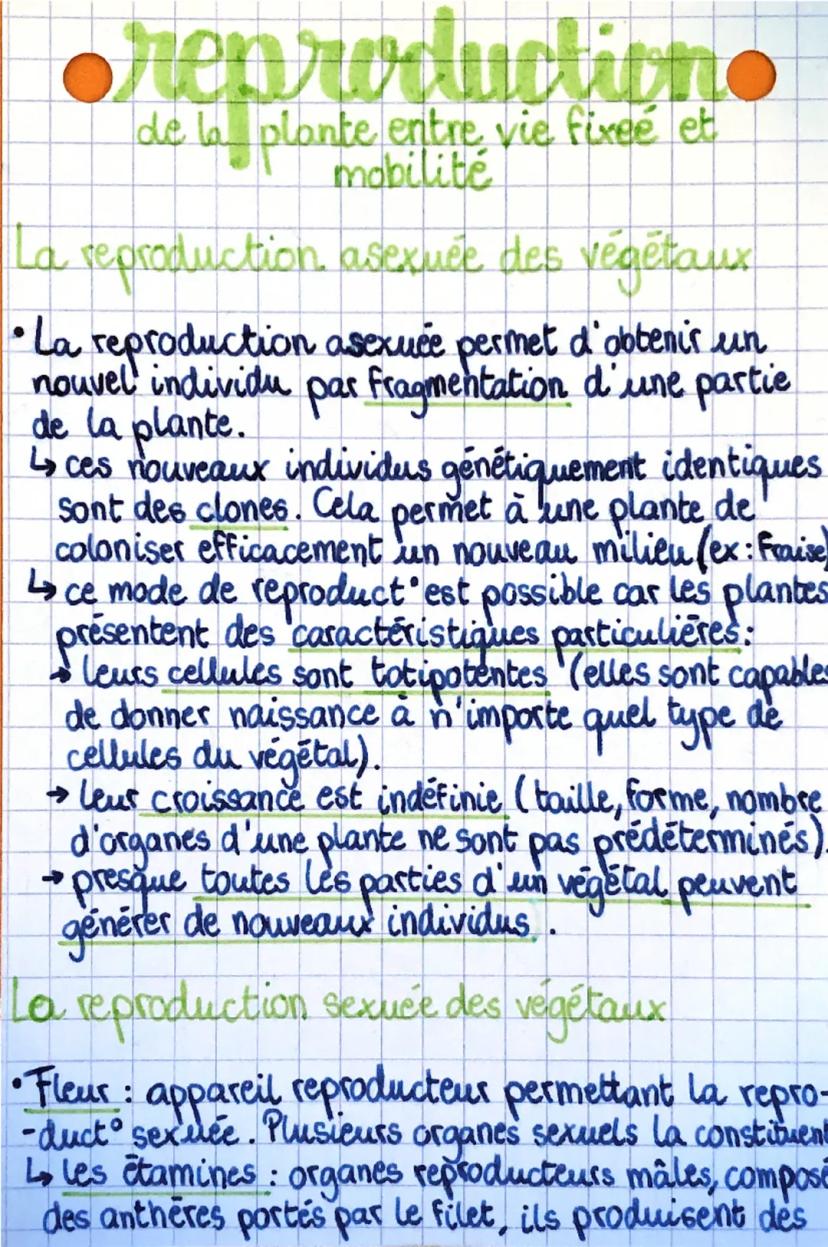 reproduction
de la plante entre vie fixeé et
mobilité
La reproduction asexuée des végétaux
• La reproduction asexuée permet d'obtenir un
nouvel individu par fragmentation d'une partie
de la plante.
↳ ces nouveaux individus génétiquement identiques
sont des clones. Cela permet à une plante de
coloniser efficacement un nouveau milieu (ex : Fraise)
↳ ce mode de reproduct° est possible car les plantes
présentent des caractéristiques particulières :
→ leurs cellules sont totipotentes (elles sont capables
de donner naissance à n'importe quel type de
cellules du végétal).
→ leur croissance est indéfinie (taille, forme, nombre
d'organes d'une plante ne sont pas prédéterminés).
→ presque toutes les parties d'un végétal peuvent
générer de nouveaux individus.
La reproduction sexuée des végétaux
• Fleur : appareil reproducteur permettant la repro-
-duct° sexuée. Plusieurs organes sexuels la constituent
↳ les étamines : organes reproducteurs mâles, composé
des anthères portés par le filet, ils produisent des